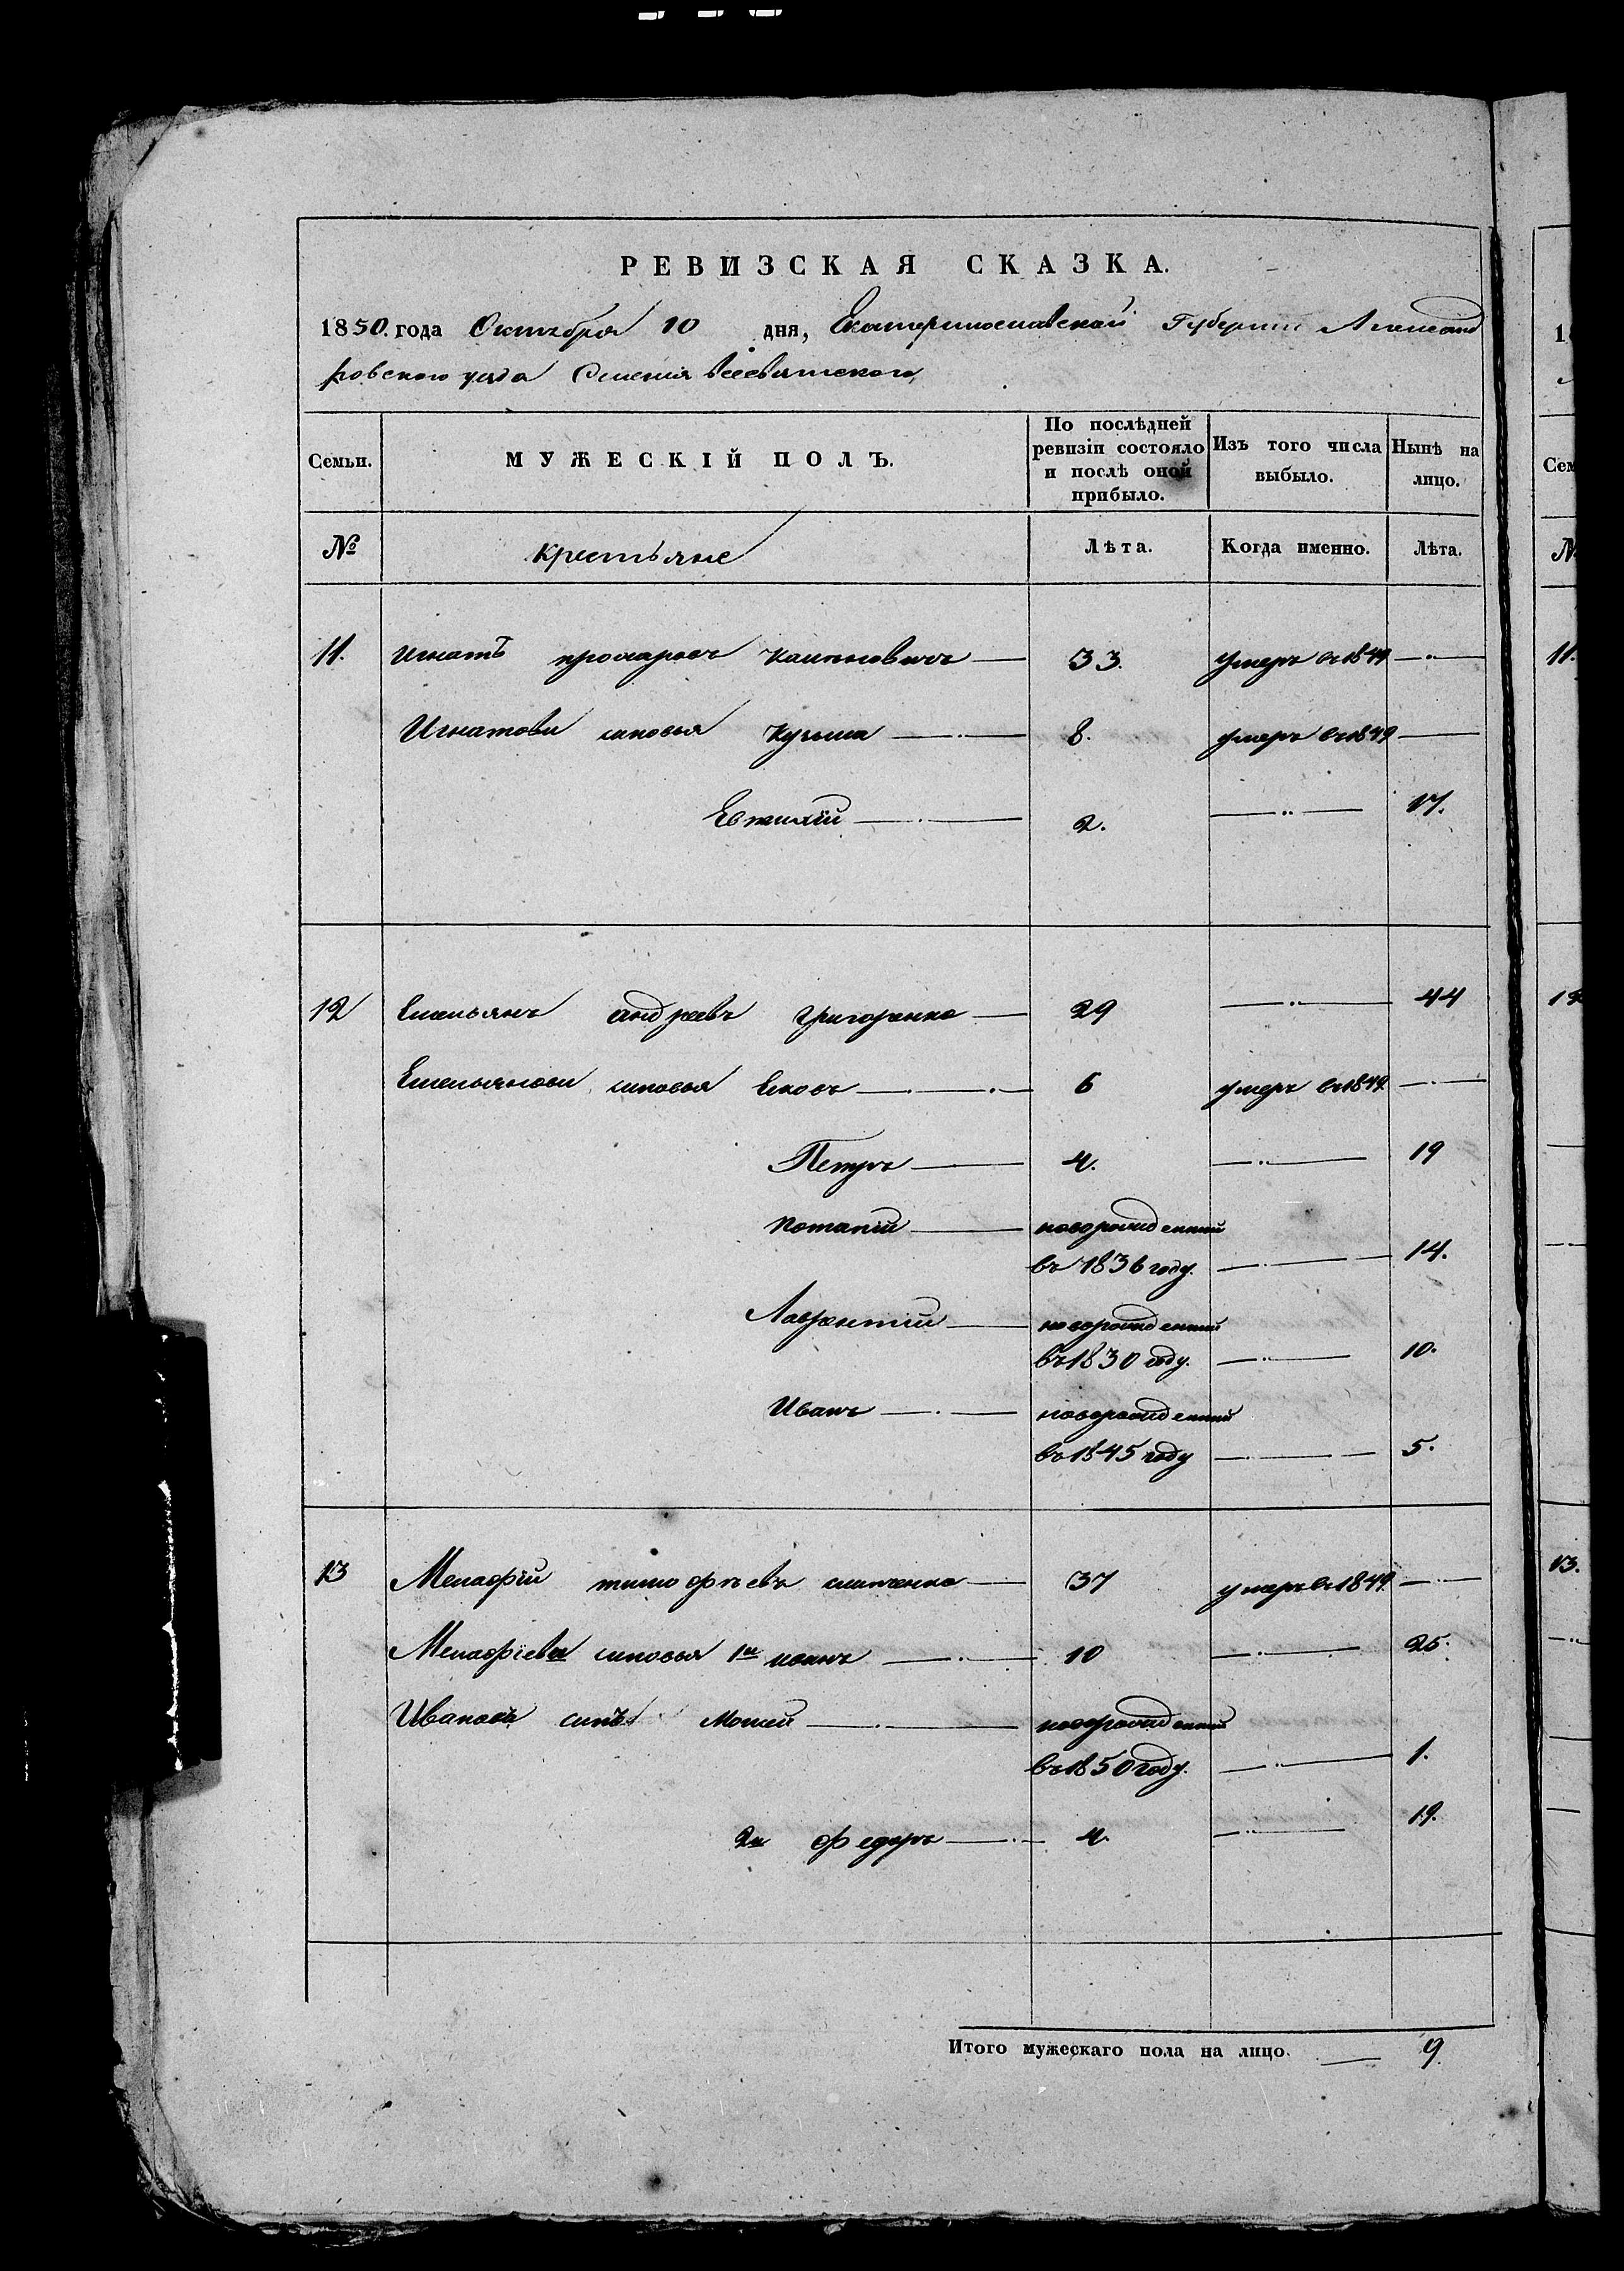 РЕВИЗСКАЯ СКАЗКА.
1850. года Октября 10 дня, Екатеринославской Губернии Александ
ровского уезда Селения Всесвятского
Семьи. МУЖЕСКІЙ ПОЛЪ. По послѣдней ревизіи состояло и послѣ оной прибыло. Изъ того числа выбыло. Нынѣ на лицо.
№ крестьяне Лѣта. Когда именно. Лѣта.
11. Игнатъ 33. умеръ въ 1849
Игнатови синовья Кузьма 8. умеръ въ 1849
Евтихій 2. 17.
12 Емельянъ андреевъ григоренко 29 44
Емельянови синовья 6 умеръ въ 1849
Петръ 4. 19
Потапій новорожденний
въ 1836 году. 14.
Лаврентій новорожденний
въ 1830 году. 10.
Иванъ новорожденний
въ 1845 году 5.
13 тимофѣевъ 37 умеръ въ 1849
синовья 1й иванъ 10 25.
Ивановъ синъ Мосей новорожденний
въ 1850 году. 1.
2й федоръ 4. 19.
Итого мужескаго пола на лицо. 9.
11.
12
13.